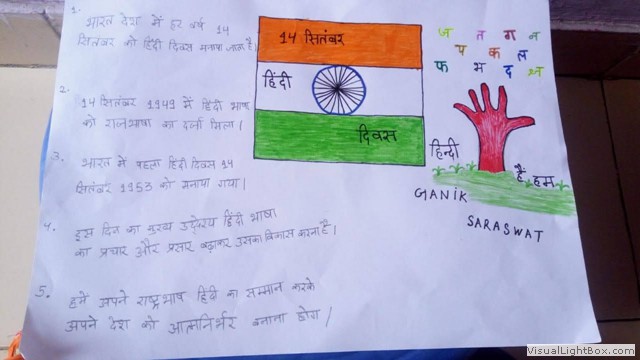 1.
भारत देश में हर वर्ष 14
सितंबर को हिंदी दिवस मनाया जाता है।
2.
14 सितंबर 1949 में हिंदी भाषा
को राजभाषा का दर्जा मिला।
3.
भारत में पहला हिंदी दिवस 14
सितंबर 1953 को मनाया गया।
4.
इस दिन का मुख्य उद्देश्य हिंदी भाषा
का प्रचार और प्रसार बढ़ाकर उसका विकास करना है।
5.
हमें अपने राष्ट्रभाषा हिंदी का सम्मान करके
अपने देश को आत्मनिर्भर बनाना होगा।
14 सितंबर
हिंदी
दिवस
ज त ग न
प क ल
फ भ द
हिन्दी
हैं हम
GANIK
SARASWAT
VisualLightBox.com